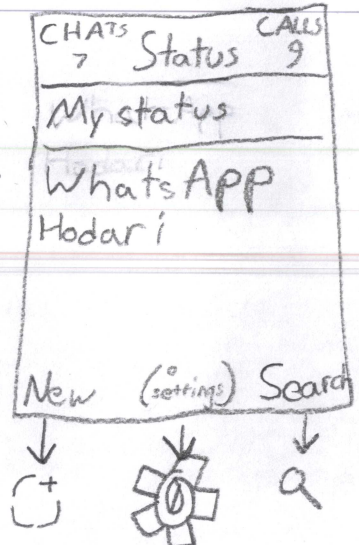 CHATS Status CALLS
7 9
My status
WhatsApp
Hodari
New (settings) Search